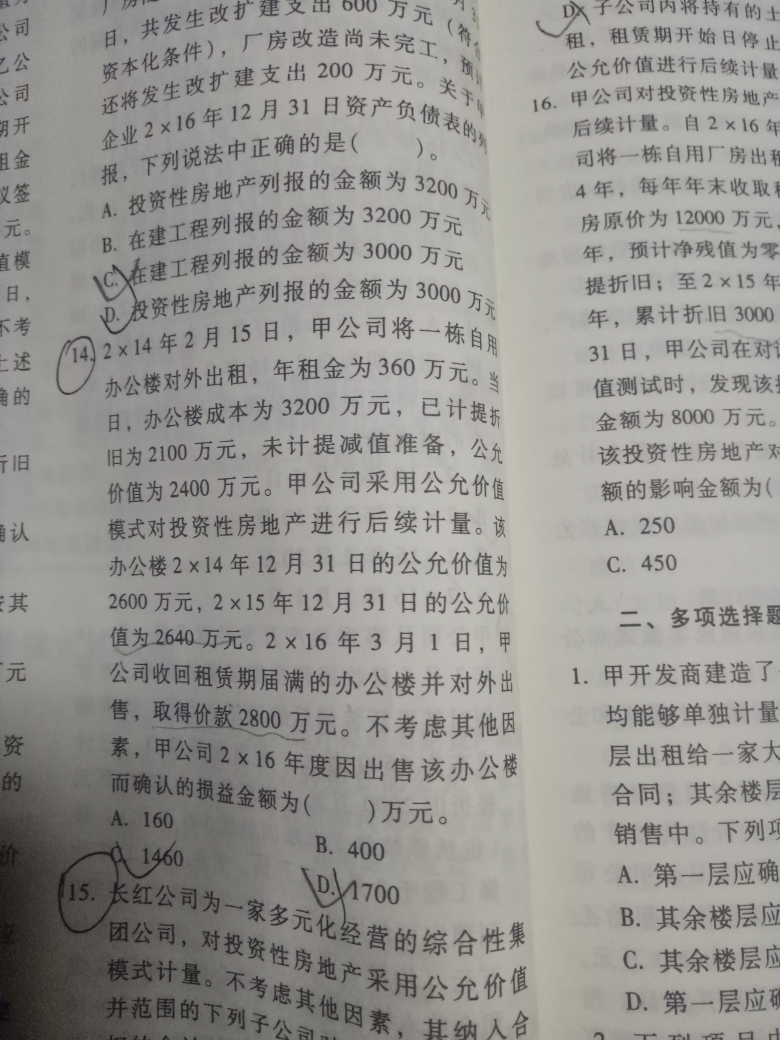 公司
乙公
公司
期开
租金
议签
元。
值模
日，
不考
上述
确的
折旧
确认
按其
万元
资
的
价
日，共发生改扩建支出 600 万元（符合
资本化条件），厂房改造尚未完工，预计
还将发生改扩建支出 200 万元。关于甲
企业 2×16 年 12 月 31 日资产负债表的列
报，下列说法中正确的是(　　)。
A. 投资性房地产列报的金额为 3200 万元
B. 在建工程列报的金额为 3200 万元
C. 在建工程列报的金额为 3000 万元
D. 投资性房地产列报的金额为 3000 万元
14. 2×14 年 2 月 15 日，甲公司将一栋自用
办公楼对外出租，年租金为 360 万元。当
日，办公楼成本为 3200 万元，已计提折
旧为 2100 万元，未计提减值准备，公允
价值为 2400 万元。甲公司采用公允价值
模式对投资性房地产进行后续计量。该
办公楼 2×14 年 12 月 31 日的公允价值为
2600 万元，2×15 年 12 月 31 日的公允价
值为 2640 万元。2×16 年 3 月 1 日，甲
公司收回租赁期届满的办公楼并对外出
售，取得价款 2800 万元。不考虑其他因
素，甲公司 2×16 年度因出售该办公楼
而确认的损益金额为(　　)万元。
A. 160
B. 400
C. 1460
D. 1700
15. 长红公司为一家多元化经营的综合性集
团公司，对投资性房地产采用公允价值
模式计量。不考虑其他因素，其纳入合
并范围的下列子公司
D. 子公司内将持有的土
租，租赁期开始日停止
公允价值进行后续计量
16. 甲公司对投资性房地产
后续计量。自 2×16 年
司将一栋自用厂房出租
4 年，每年年末收取租
房原价为 12000 万元，
年，预计净残值为零
提折旧；至 2×15 年
年，累计折旧 3000
31 日，甲公司在对该
值测试时，发现该
金额为 8000 万元。
该投资性房地产对
额的影响金额为(
A. 250
C. 450
二、多项选择题
1. 甲开发商建造了
均能够单独计量
层出租给一家大
合同；其余楼层
销售中。下列项
A. 第一层应确
B. 其余楼层应
C. 其余楼层应
D. 第一层应确
2. 下列项目中